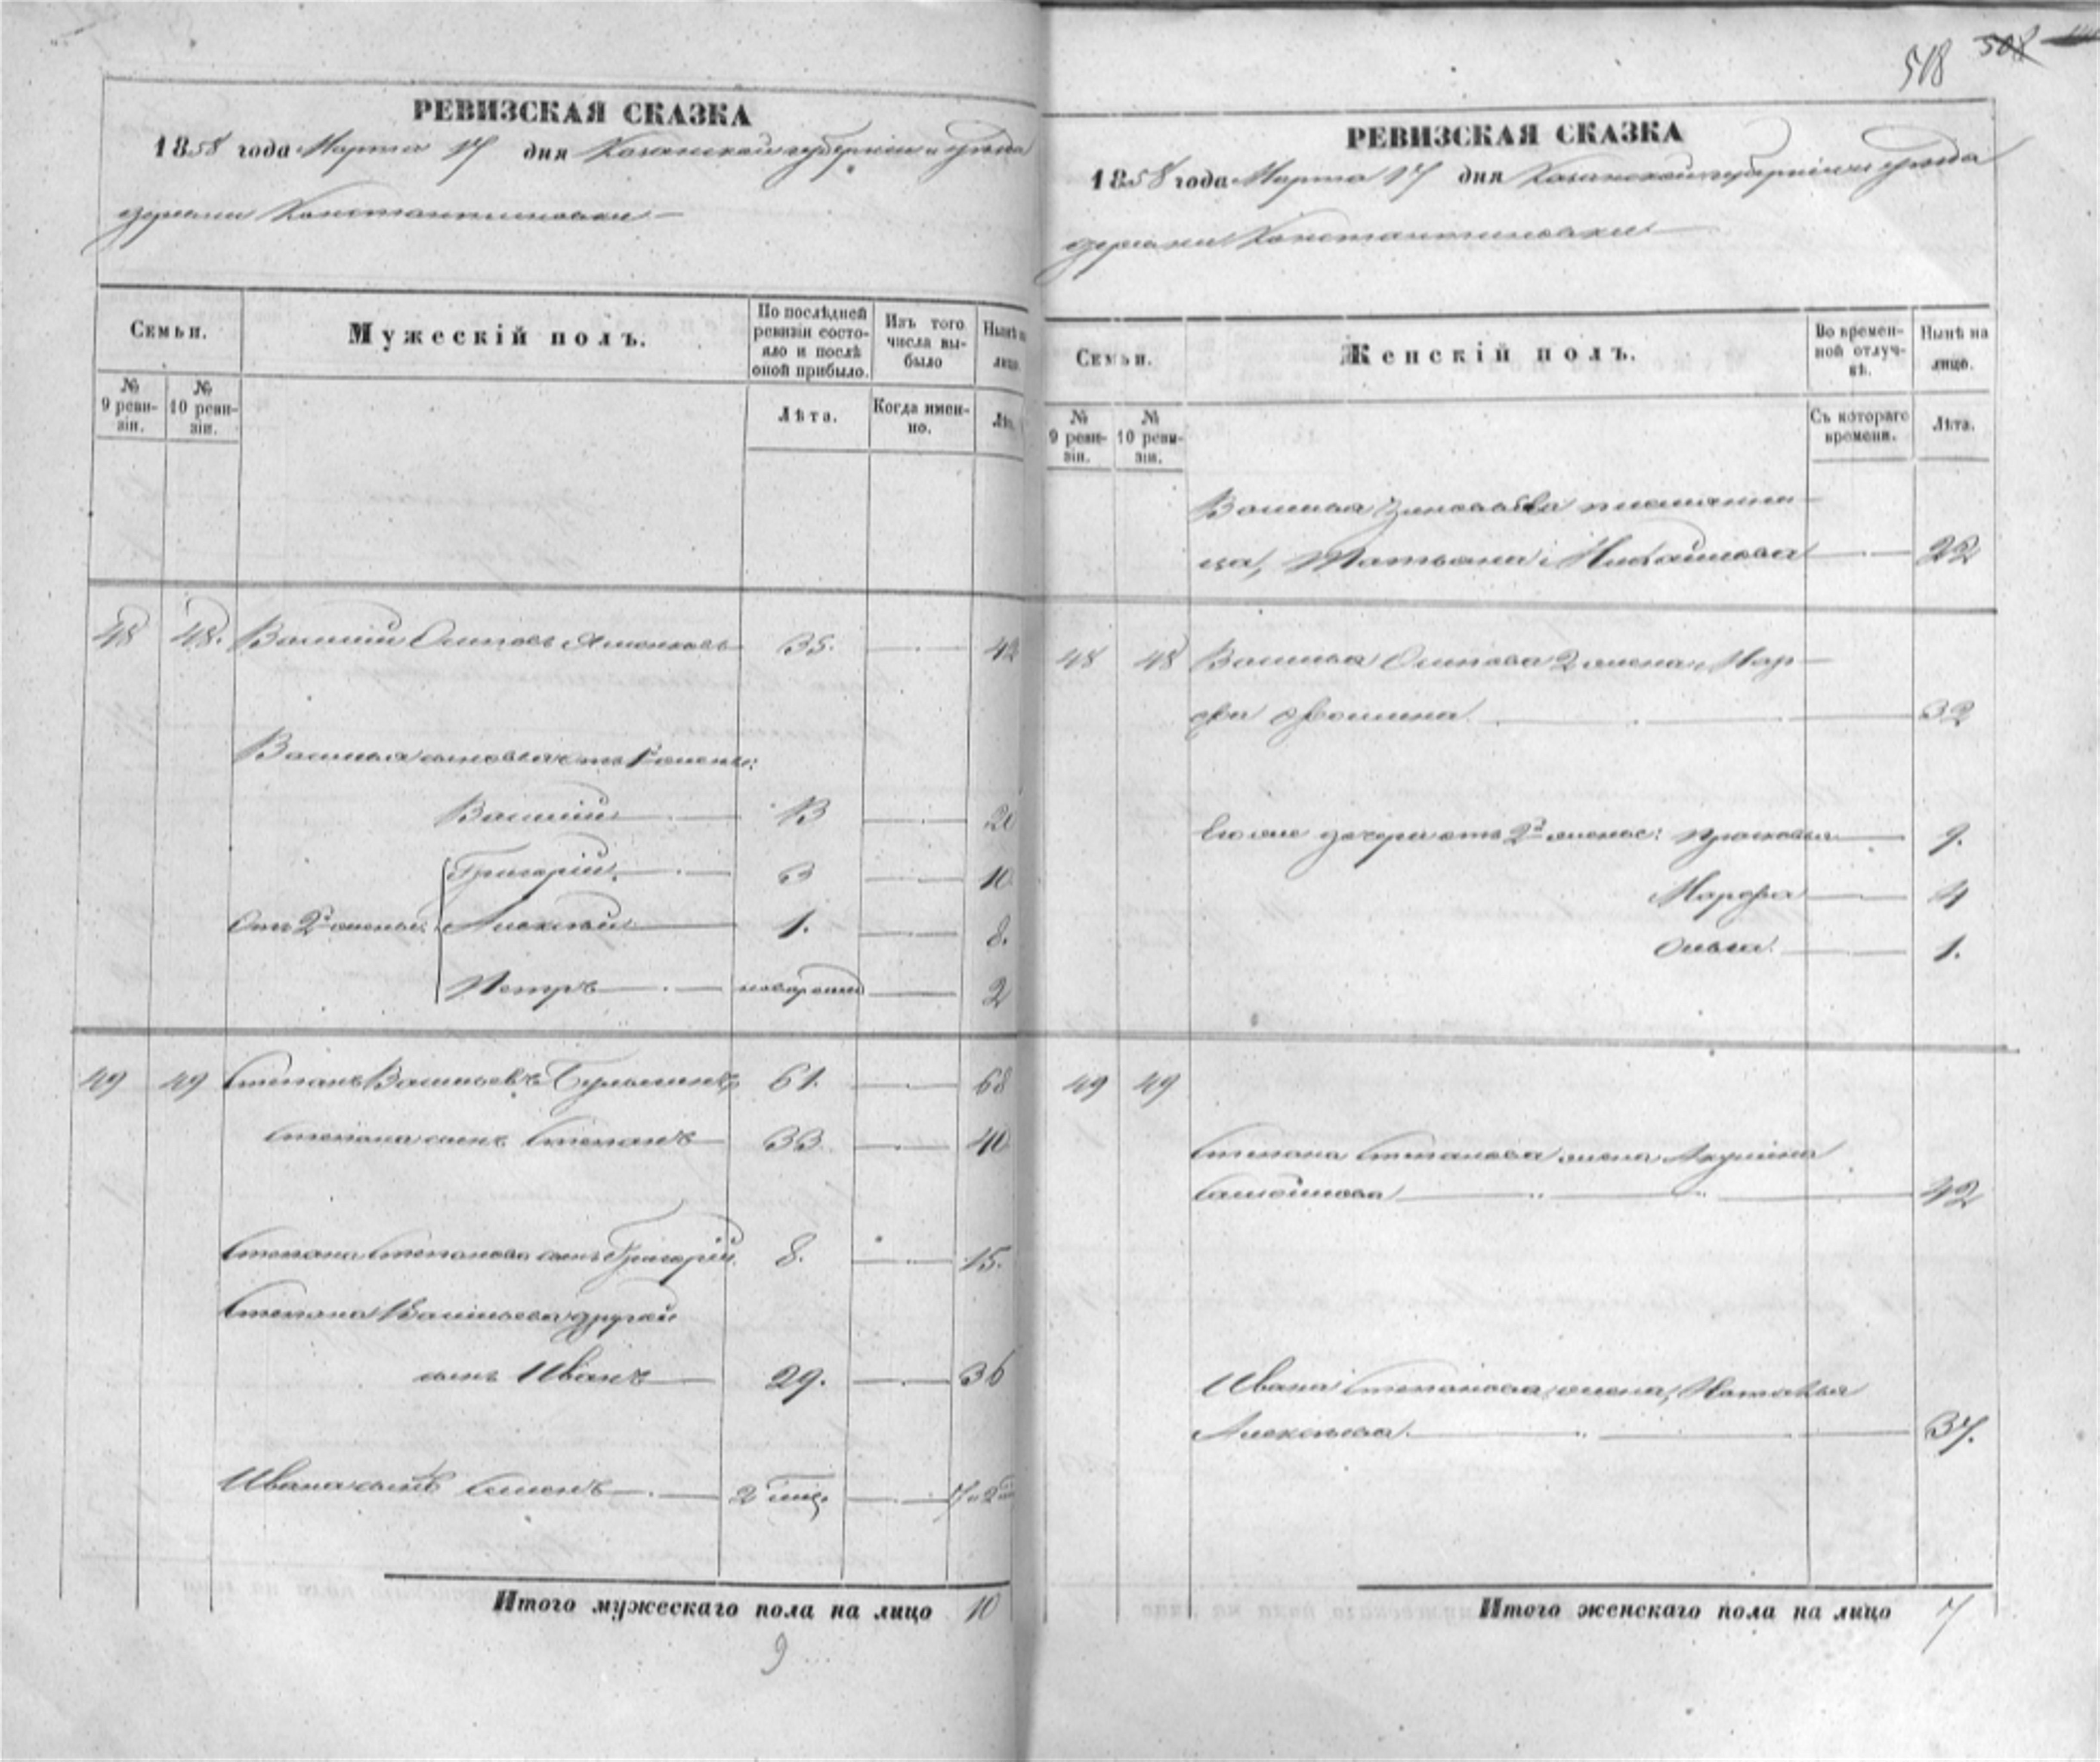 518 508
РЕВИЗСКАЯ СКАЗКА
1858 года Марта 17 дня Казанской губернии и уѣзда
деревни Константиновки
Семьи.
Мужескій полъ.
По послѣдней ревизіи состояло и послѣ оной прибыло.
Изъ того числа выбыло
Нынѣ на лицо.
№ 9 ревизіи.
№ 10 ревизіи.
Лѣта.
Когда именно.
Лѣта.
48 48. Василій Осиповъ 35. 42
Василья сыновья отъ 1й жены:
Василій 13 20
Григорій 3 10
Отъ 2й жены: Алексѣй 1. 8.
Петръ новорожд 2
49 49 Степанъ Васильевъ 61. 68
Степана сынъ Степанъ 33 40
Степана Степанова сынъ Григорій 8. 15.
Степана Васильева другой
сынъ Иванъ 29. 36
Ивана сынъ Семенъ 2 мѣс. 7 и 2 мѣс
Итого мужескаго пола на лицо 10
9
РЕВИЗСКАЯ СКАЗКА
1858 года Марта 17 дня Казанской губерніи и уѣзда
деревни Константиновки
Семьи.
Женскій полъ.
Во временной отлучкѣ.
Нынѣ на лицо.
№ 9 ревизіи.
№ 10 ревизіи.
Съ котораго времени.
Лѣта.
Василья Зиновьева племянни-
ца, Татьяна Михайлова 22
48 48 Василья Осипова 2 жена Мар-
фа Фомина 32
Его же дочери отъ 2й жены: Прасковья 9.
Марфа 4
Ольга 1.
49 49
Степана Степанова жена Акулина
Самойлова 42
Ивана Степанова жена, Наталья
Алексѣева 37.
Итого женскаго пола на лицо 7